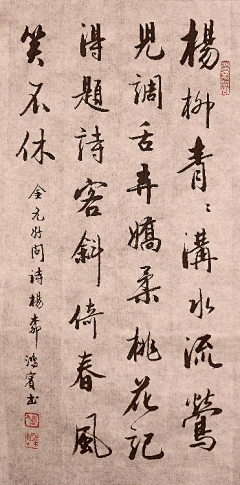 楊柳青〻溝水流鶯
兒調舌弄嬌柔桃花記
得題詩客斜倚春風
笑不休
金元好問詩楊柳 鴻賓書